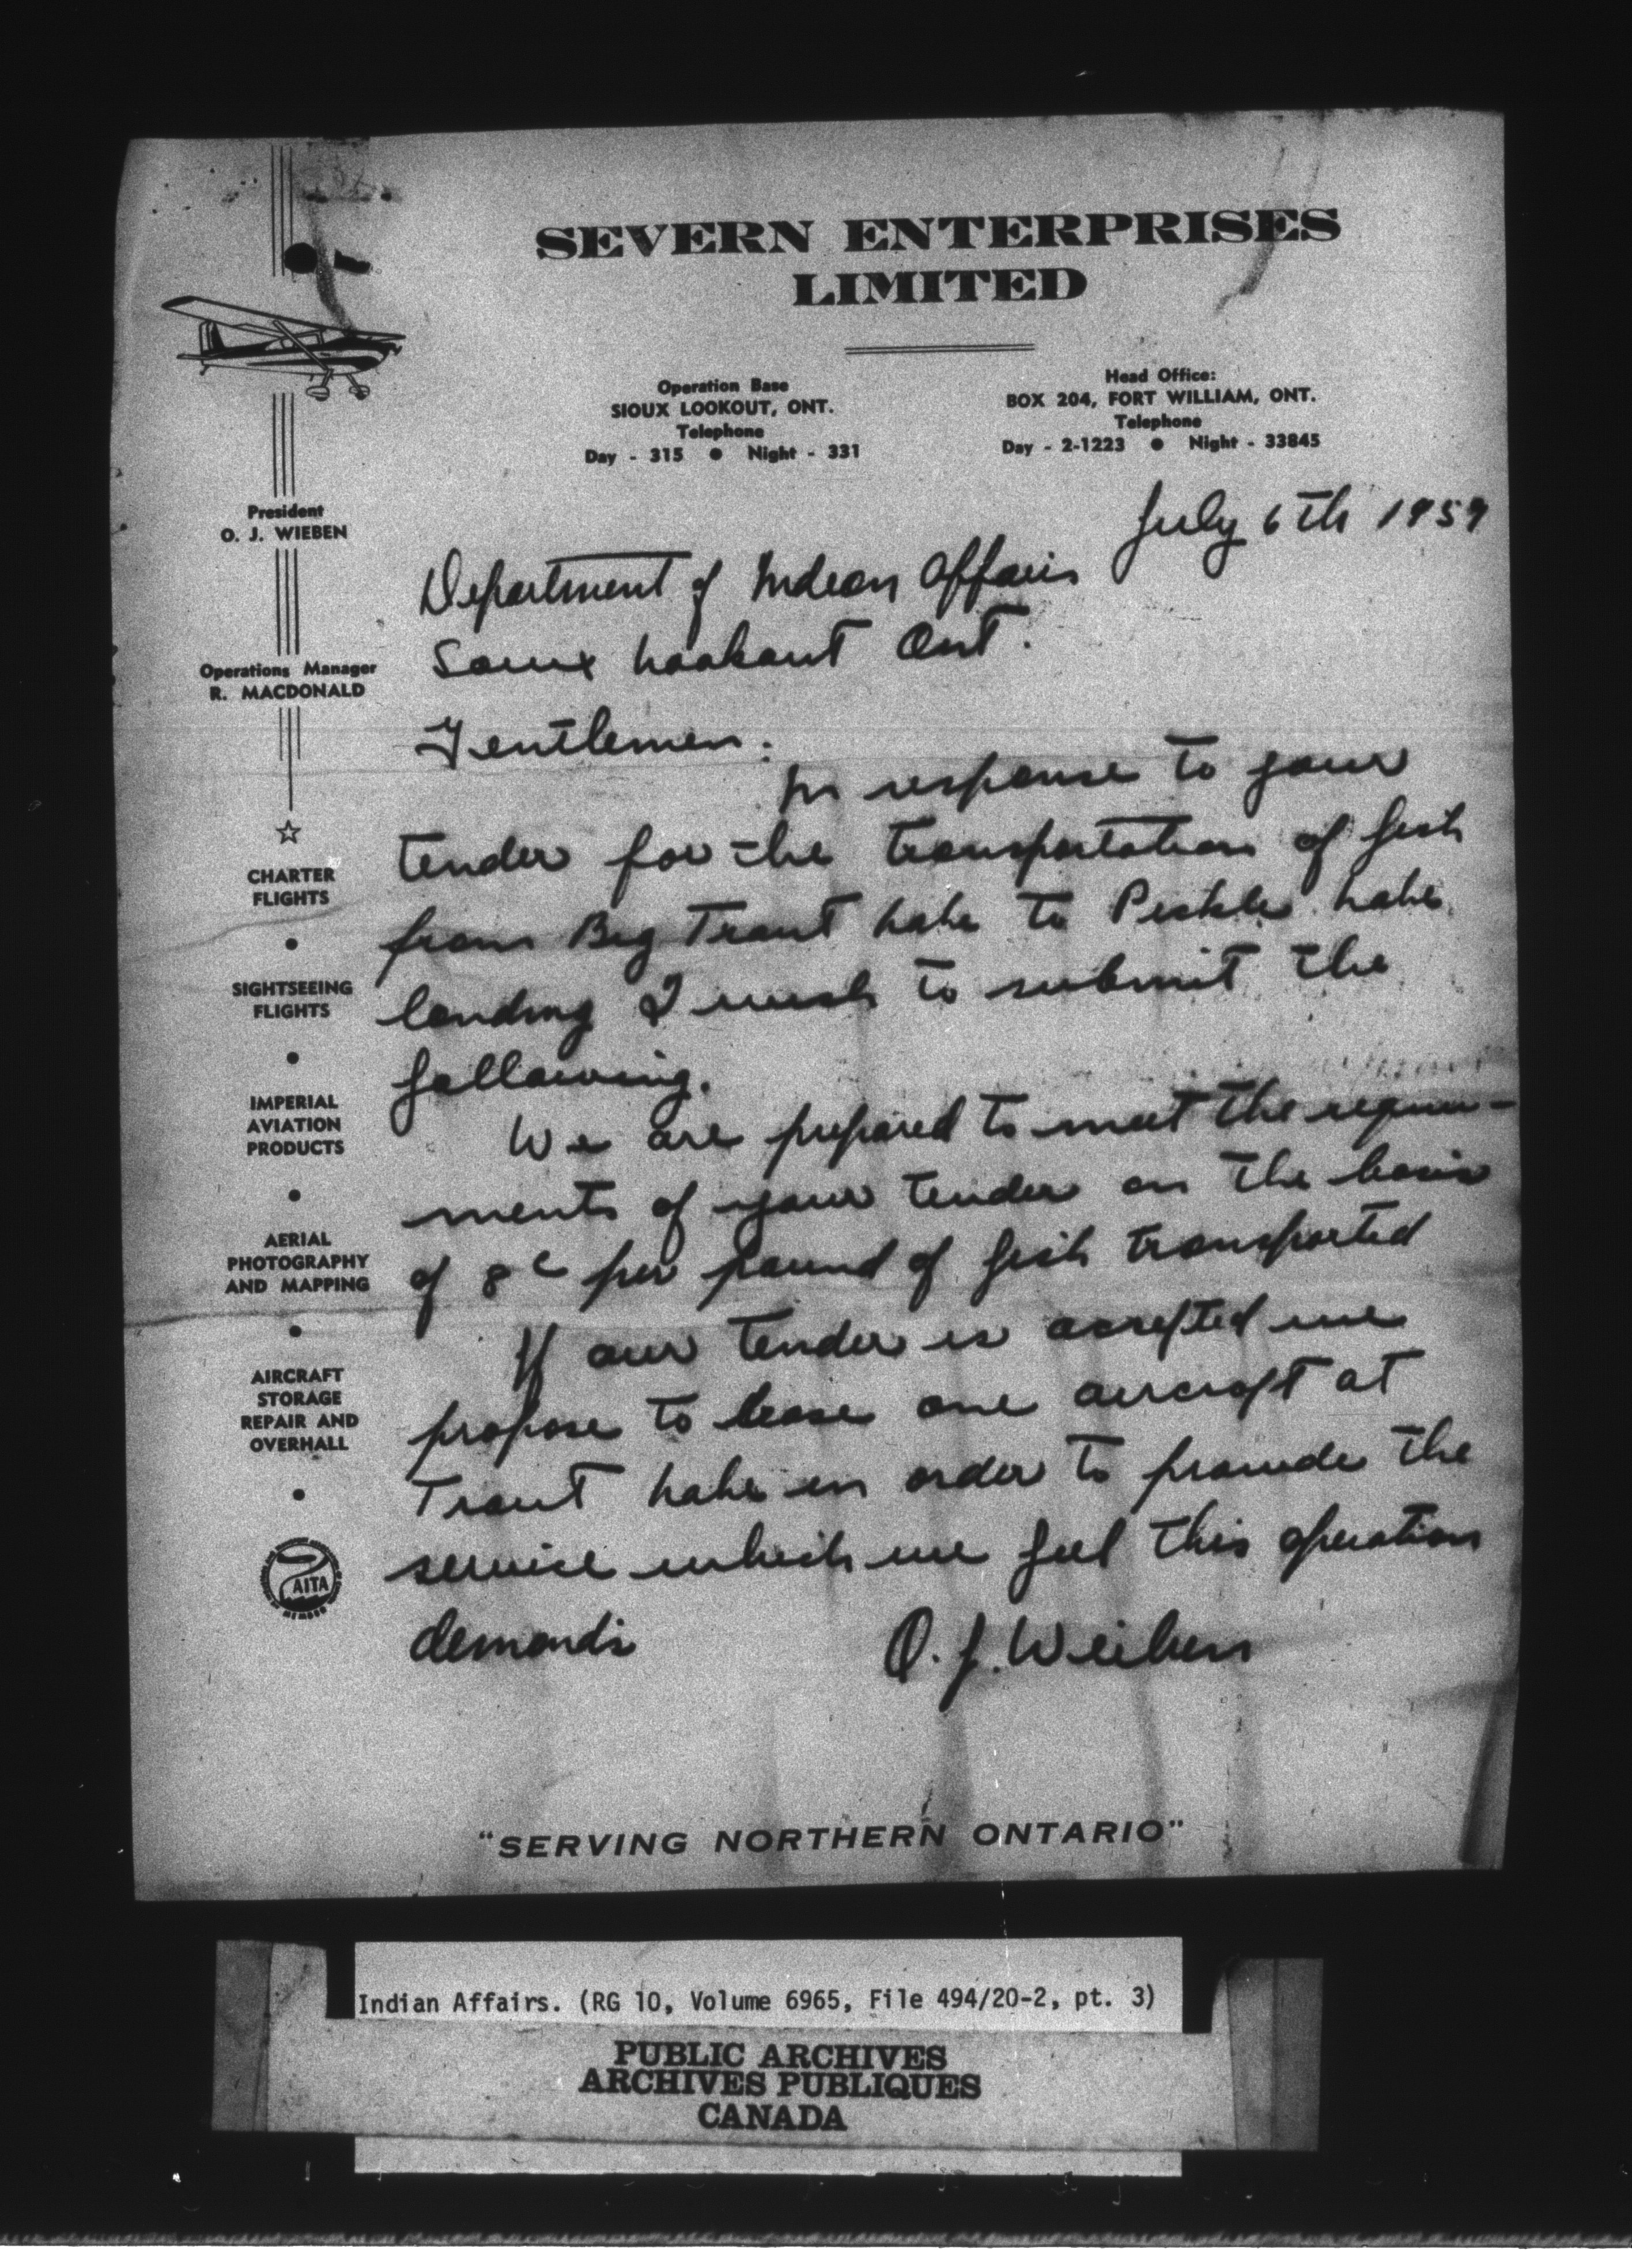 SEVERN ENTERPRISES
LIMITED
Operation Base
SIOUX LOOKOUT, ONT.
Telephone
Day - 315 • Night - 331
Head Office:
BOX 204, FORT WILLIAM, ONT.
Telephone
Day - 2-1223 • Night - 33845
President
O. J. WIEBEN
Operations Manager
R. MACDONALD
☆
CHARTER
FLIGHTS
•
SIGHTSEEING
FLIGHTS
•
IMPERIAL
AVIATION
PRODUCTS
•
AERIAL
PHOTOGRAPHY
AND MAPPING
•
AIRCRAFT
STORAGE
REPAIR AND
OVERHALL
•
AITA
MEMBER
July 6th 1959
Department of Indian Affairs
Soiux Lookout Ont.
Gentlemen:
In response to your
tender for the transportation of fish
from Big Trout Lake to Pickle Lake
landing I wish to submit the
following.
We are prepared to meet the require-
ments of your tender on the basis
of 8c per pound of fish transported
If our tender is accepted we
propose to base one aircraft at
Trout Lake in order to provide the
service which we feel this operation
demands
O. J. Weiben
"SERVING NORTHERN ONTARIO"
Indian Affairs. (RG 10, Volume 6965, File 494/20-2, pt. 3)
PUBLIC ARCHIVES
ARCHIVES PUBLIQUES
CANADA